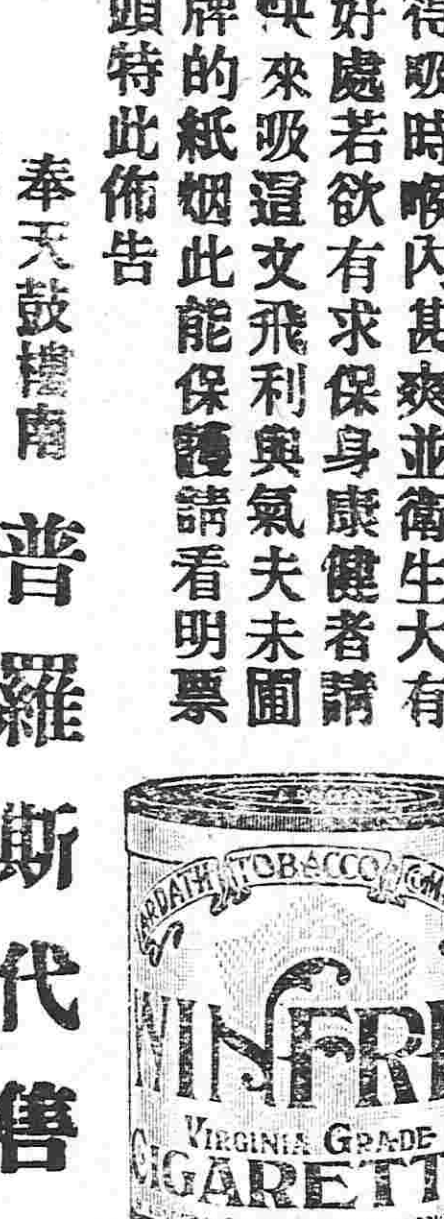 得吸時喉內甚爽並衛生大有
好處若欲有求保身康健者請
快來吸這文飛利與氣夫未圃
牌的紙烟此能保護請看明票
頭特此佈告
奉天鼓樓南
普羅斯代售
ARDATH TOBACCO COM
WINFRE
VIRGINIA GRADE
CIGARETT